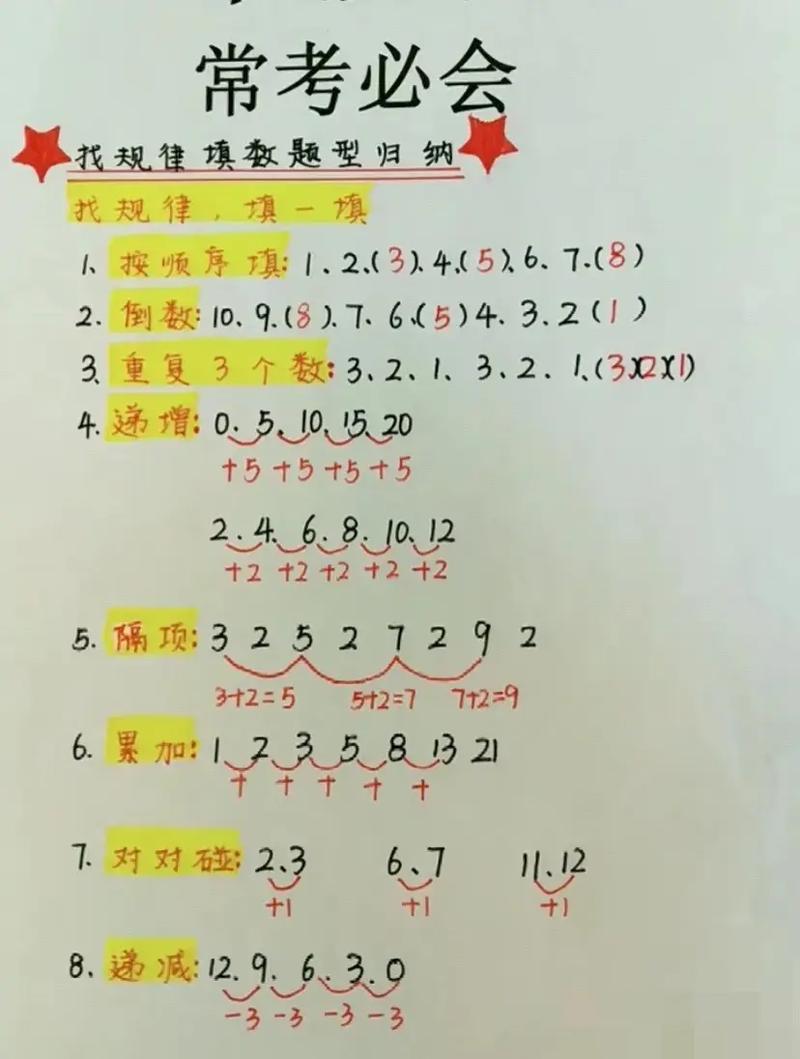 常考必会
找规律填数题型归纳
找规律,填一填
1、按顺序填:1、2、(3)、4、(5)、6、7、(8)
2.倒数:10、9、(8)、7、6、(5)4、3、2(1)
3、重复3个数:3、2、1、3、2、1、(3)(2)(1)
4.递增:0、5、10、15、20
+5 +5 +5 +5
2、4、6、8、10、12
+2 +2 +2 +2 +2
5.隔项:3 2 5 2 7 2 9 2
3+2=5 5+2=7 7+2=9
6.累加:1 2 3 5 8 13 21
+ + + + +
7.对对碰:2、3 6、7 11、12
+1 +1 +1
8、递减:12、9、6、3、0
-3 -3 -3 -3